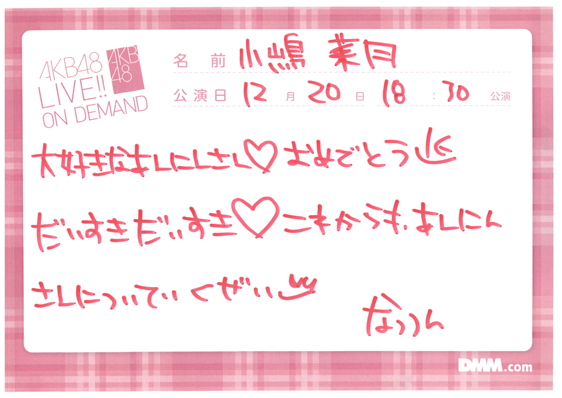 AKB48
LIVE!!
ON DEMAND
AKB
48
名前 小嶋 菜月
公演日 12 月 20 日 18 : 30 公演
大好きなよしにしさん♡おめでとう
だいすきだいすき♡これからも、よしにん
さんについていくぜい
なっつん
DMM.com